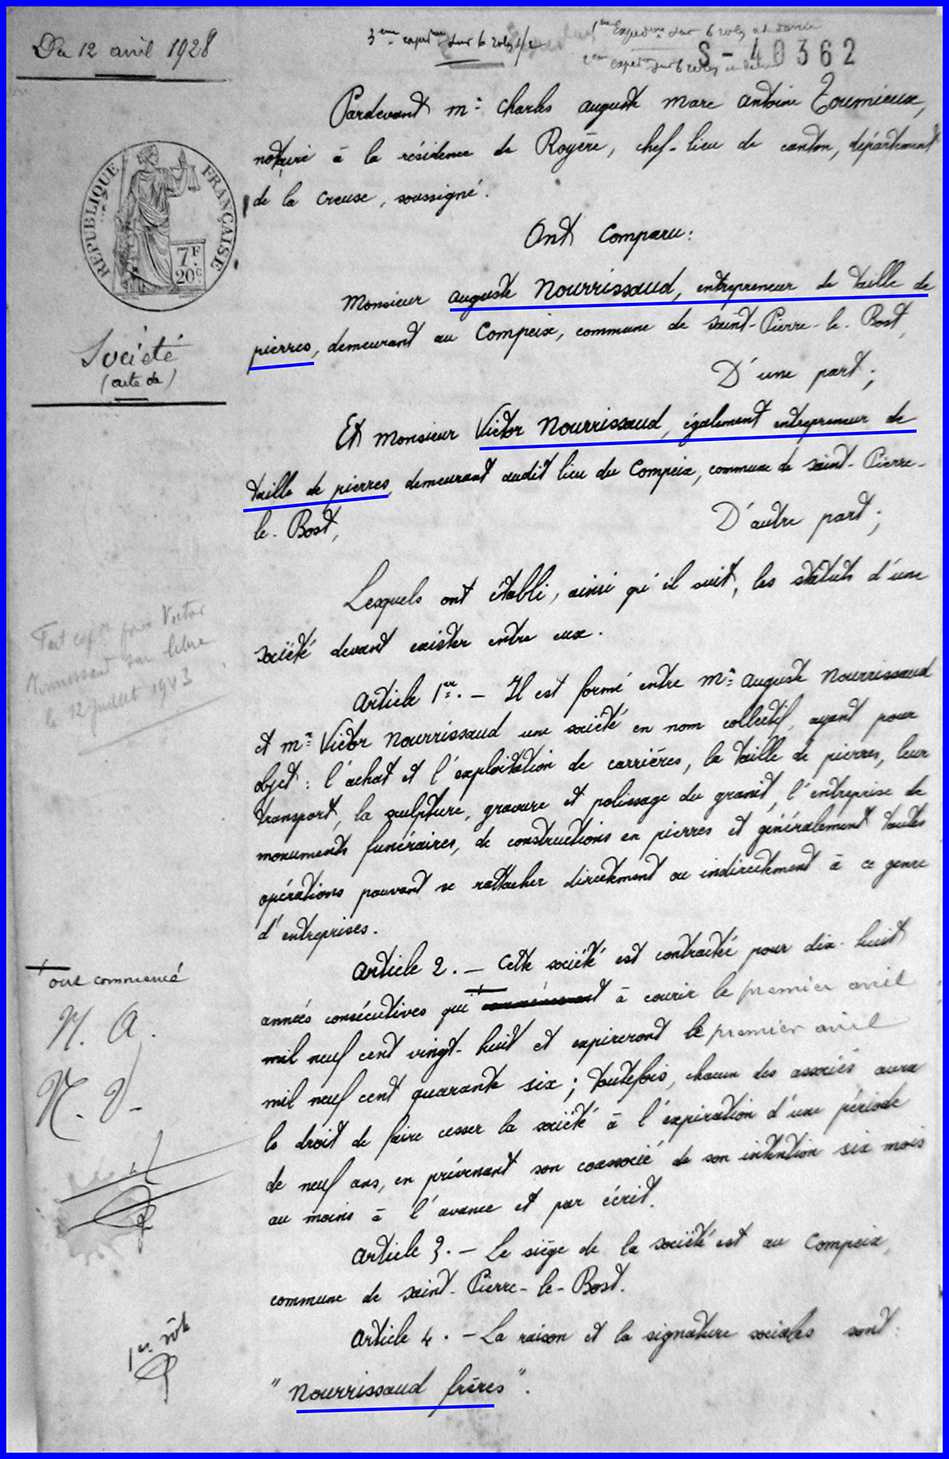 Du 12 avril 1928
3ème expedon sur 6 roles 1/2
S-40362
Pardevant me Charles auguste marc antoine Toumieux,
notaire à la résidence de Royère, chef-lieu de canton, département
de la Creuse, soussigné.
RÉPUBLIQUE FRANÇAISE
7F.
20c
Ont Comparu:
Monsieur auguste Nourrissaud, entrepreneur de taille de
pierres, demeurant au Compeix, commune de Saint-Pierre-le-Bost,
Société
(acte de)
D'une part;
Et monsieur Victor Nourrissaud, également entrepreneur de
taille de pierres, demeurant audit lieu du Compeix, commune de Saint-Pierre-
le-Bost,
D'autre part;
Lesquels ont établi, ainsi qu'il suit, les statuts d'une
société devant exister entre eux.
Fait expon pour Victor
Nourrissaud sur libre
le 12 juillet 1943
article 1er. – Il est formé entre mr auguste nourrissaud
et mr Victor nourrissaud une société en nom collectif, ayant pour
objet: l'achat et l'exploitation de carrières, la taille de pierres, leur
transport, la sculpture, gravure et polissage du granit, l'entreprise de
monuments funéraires, de constructions en pierres et généralement toutes
opérations pouvant se rattacher directement ou indirectement à ce genre
d'entreprises.
article 2. – Cette société est contractée pour dix-huit
ont commencé
années consécutives qui à courir le premier avril
N. A.
mil neuf cent vingt-huit et expireront le premier avril
N. V.
mil neuf cent quarante six; toutefois, chacun des associés aura
le droit de faire cesser la société à l'expiration d'une période
de neuf ans, en prévenant son coassocié de son intention six mois
au moins à l'avance et par écrit.
article 3. – Le siège de la société est au Compeix,
commune de Saint-Pierre-le-Bost.
article 4. – La raison et la signature sociales sont:
1er rôle
"Nourrissaud frères".